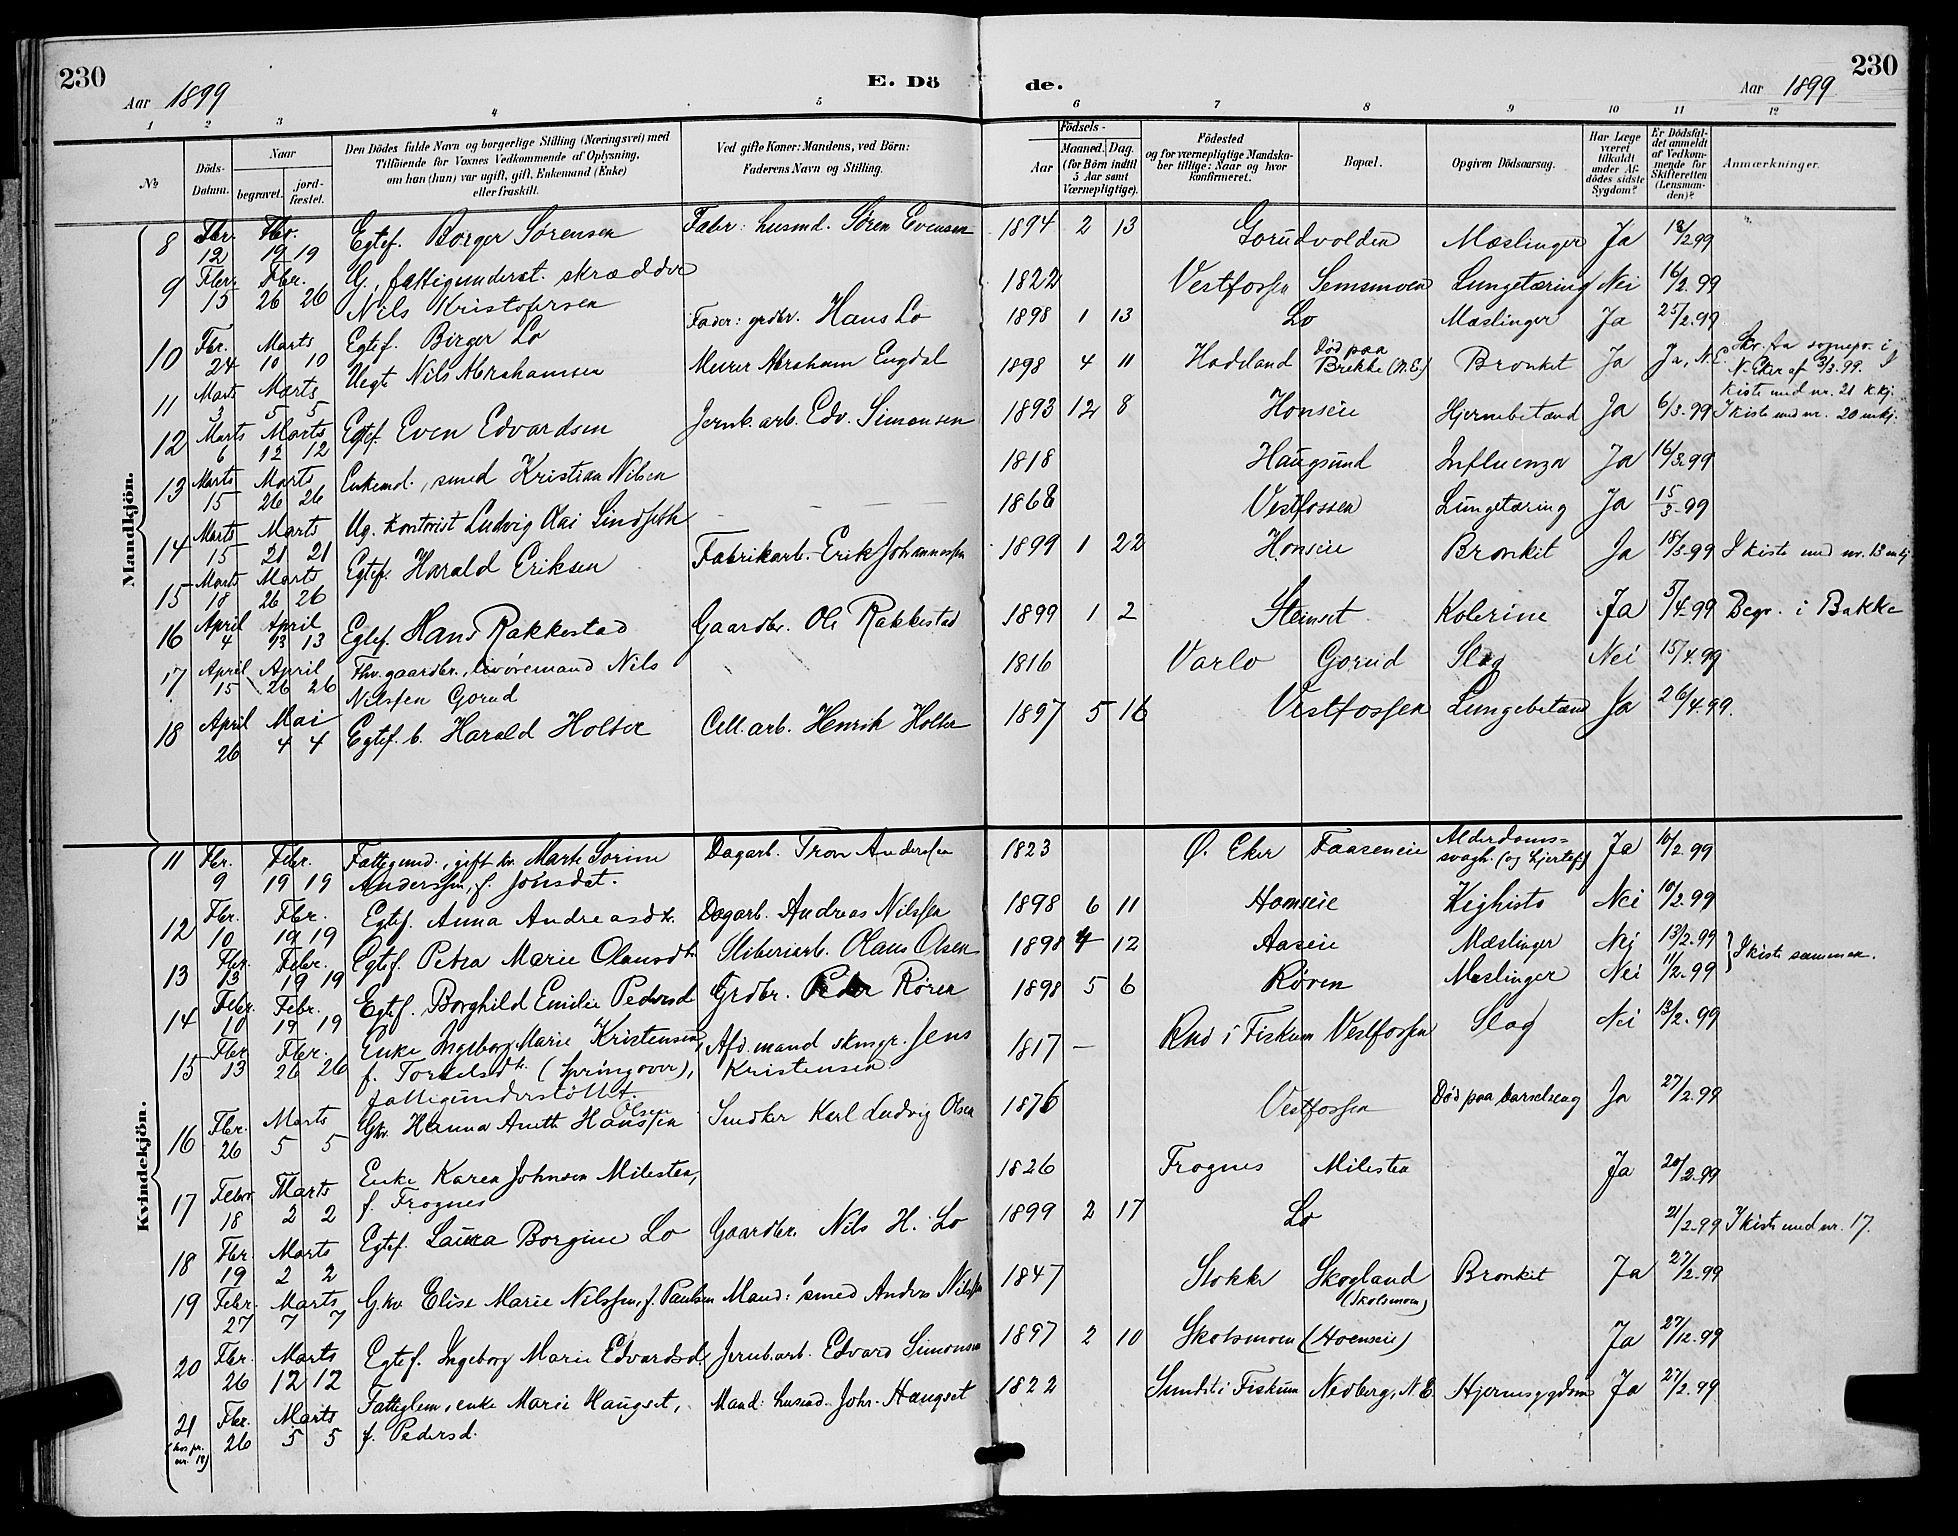 230
Aar 1899
E. Dö
de.
Aar 1899
230
1 2 3 4 5 6 7 8 9 10 11 12
№
Döds-Datum.
Naar
begravet.
jord-fæstet.
Den Dödes fulde Navn og borgerlige Stilling (Næringsvei) med
Tilföiende for Voxnes Vedkommende af Oplysning,
om han (hun) var ugift, gift, Enkemand (Enke)
eller fraskilt.
Ved gifte Koner: Mandens, ved Börn:
Faderens Navn og Stilling.
Födsels-
Aar
Maaned. Dag.
(for Börn indtil
5 Aar samt
Værnepligtige).
Födested
og for værnepligtige Mandska-
ber tillige: Naar og hvor
konfirmeret.
Bopæl.
Opgiven Dödsaarsag.
Har Læge
været
tilkaldt
under Af-
dödes sidste
Sygdom?
Er Dödsfal-
det anmeldt
af Vedkom-
mende for
Skifteretten
(Lensman-
den)?
Anmærkninger.
Mandkjön.
8 Fbr. 12 Fbr. 19 19 Egtef. Borger Sørensen Fader: husmd. Søren Evensen 1894 2 13 Gorudvolden Mæslinger Ja 18/2 99
9 Fbr. 15 Fbr. 26 26 G., fattigunderst. skrædder
Nils Kristofersen 1822 Vestfossen Semsmoen Lungetæring Nei 16/2 99
10 Fbr. 24 Marts 10 10 Egtef. Birger Lo Fader: grdbr. Hans Lo 1898 1 13 Lo Mæslinger Ja 25/2 99
11 Marts 3 Marts 5 5 Uegt Nils Abrahamsen Murer Abraham Engdal 1898 4 11 Hadeland Død paa Brekke (N.E.) Bronkit Ja Ja, N.E. Skr. fra sognepr. i
N. Eker af 3/3 99. I
kiste med nr. 21 k.kj.
12 Marts 6 Marts 12 12 Egtef. Even Edvardsen Jernb.arb. Edv. Simonsen 1893 12 8 Honseie Hjernebetænd Ja 6/3 99 I kiste med nr. 20 m.kj.
13 Marts 15 Marts 26 26 Enkemd., smed Kristian Nilsen 1818 Haugsund Influenza Ja 16/3 99
14 Marts 15 Marts 21 21 Ug. Kontorist Ludvig Olai Lindseth 1868 Vestfossen Lungetæring Ja 15/3 99
15 Marts 18 Marts 26 26 Egtef. Harald Eriksen Fabrikarb. Erik Johannessen 1899 1 22 Honseie Bronkit Ja 18/3 99 I kiste med nr. 13 m.kj
16 April 4 April 13 13 Egtef. Hans Rakkestad Gaardbr. Ole Rakkestad 1899 1 2 Steinset Kolerine Ja 5/4 99 Begr. i Bakke
17 April 15 April 26 26 Fhv. gaardbr., livøremand Nils
Nilssen Gorud 1816 Varlo Gorud Slag Nei 15/4 99
18 April 26 Mai 4 4 Egtef. b. Harald Holter Cell.arb. Henrik Holter 1897 5 16 Vestfossen Lungebetænd Ja 26/4 99.
Kvindekjön.
11 Fbr. 9 Febr. 19 19 Fattigund., gift kv. Marte Sorine
Anderssen, f. Jonsdat. Dagarb. Tron Andersen 1823 Ø. Eker Faaseneie Alderdoms-
svagh. (og hjertef.) Ja 10/2 99
12 Fbr. 10 Fbr. 19 19 Egtef. Anna Andreasdt. Dagarb. Andreas Nilssen 1898 6 11 Homseie Kighoste Nei 10/2 99
13 Fbr. 13 Febr. 19 19 Egtef. Petra Marie Olausdt. Sliberiarb. Olaus Olsen 1898 4 12 Aaseie Mæslinger Nei 13/2 99
I kiste sammen.
14 Febr. 10 Febr. 19 19 Egtef. Borghild Emilie Pedersd Grdbr. Peder Røren 1898 5 6 Røren Mæslinger Nei 11/2 99
15 Fbr. 13 Fbr. 26 26 Enke Ingeborg Marie Kristensen,
f. Torkelsdt. (Springover),
fattigunderstöttet. Afd. mand skmgr. Jens
Kristensen 1817 – Rud i Fiskum Vestfossen Slag Nei 13/2 99
16 Fbr. 26 Marts 5 5 Gkv. Hanna Aneth Hanssen Olsen Snedker Karl Ludvig Olsen 1876 Vestfossen Død paa barselseng Ja 27/2 99
17 Febr 18 Marts 2 2 Enke Karen Johnsen Milesten,
f. Frognes 1826 Frognes Milesten Ja 20/2 99
18 Fbr. 19 Marts 2 2 Egtef. Laura Borgine Lo Gaardbr. Nils H. Lo 1899 2 17 Lo 21/2 99 I kiste med nr. 17.
19 Febr. 27 Marts 7 7 Gkv Elise Marie Nilssen, f. Paulsen Mand: smed Anders Nilssen 1847 Stokke Skogland
(Skotsmoen) Bronkit Ja 27/2 99
20 Fbr. 26 Marts 12 12 Egtef. Ingeborg Marie Edvardsd. Jernb.arb. Edvard Simonsen 1897 2 10 Skotsmoen (Hoenseie) Ja 27/12 99
21 Fbr. 26 Marts 5 5 Fattiglem, enke Marie Haugset,
f. Pedersd. Mand: husmd. Johs. Haugset 1822 Sundet i Fiskum Nedberg, N.E. Hjernesygdom Ja 27/2 99